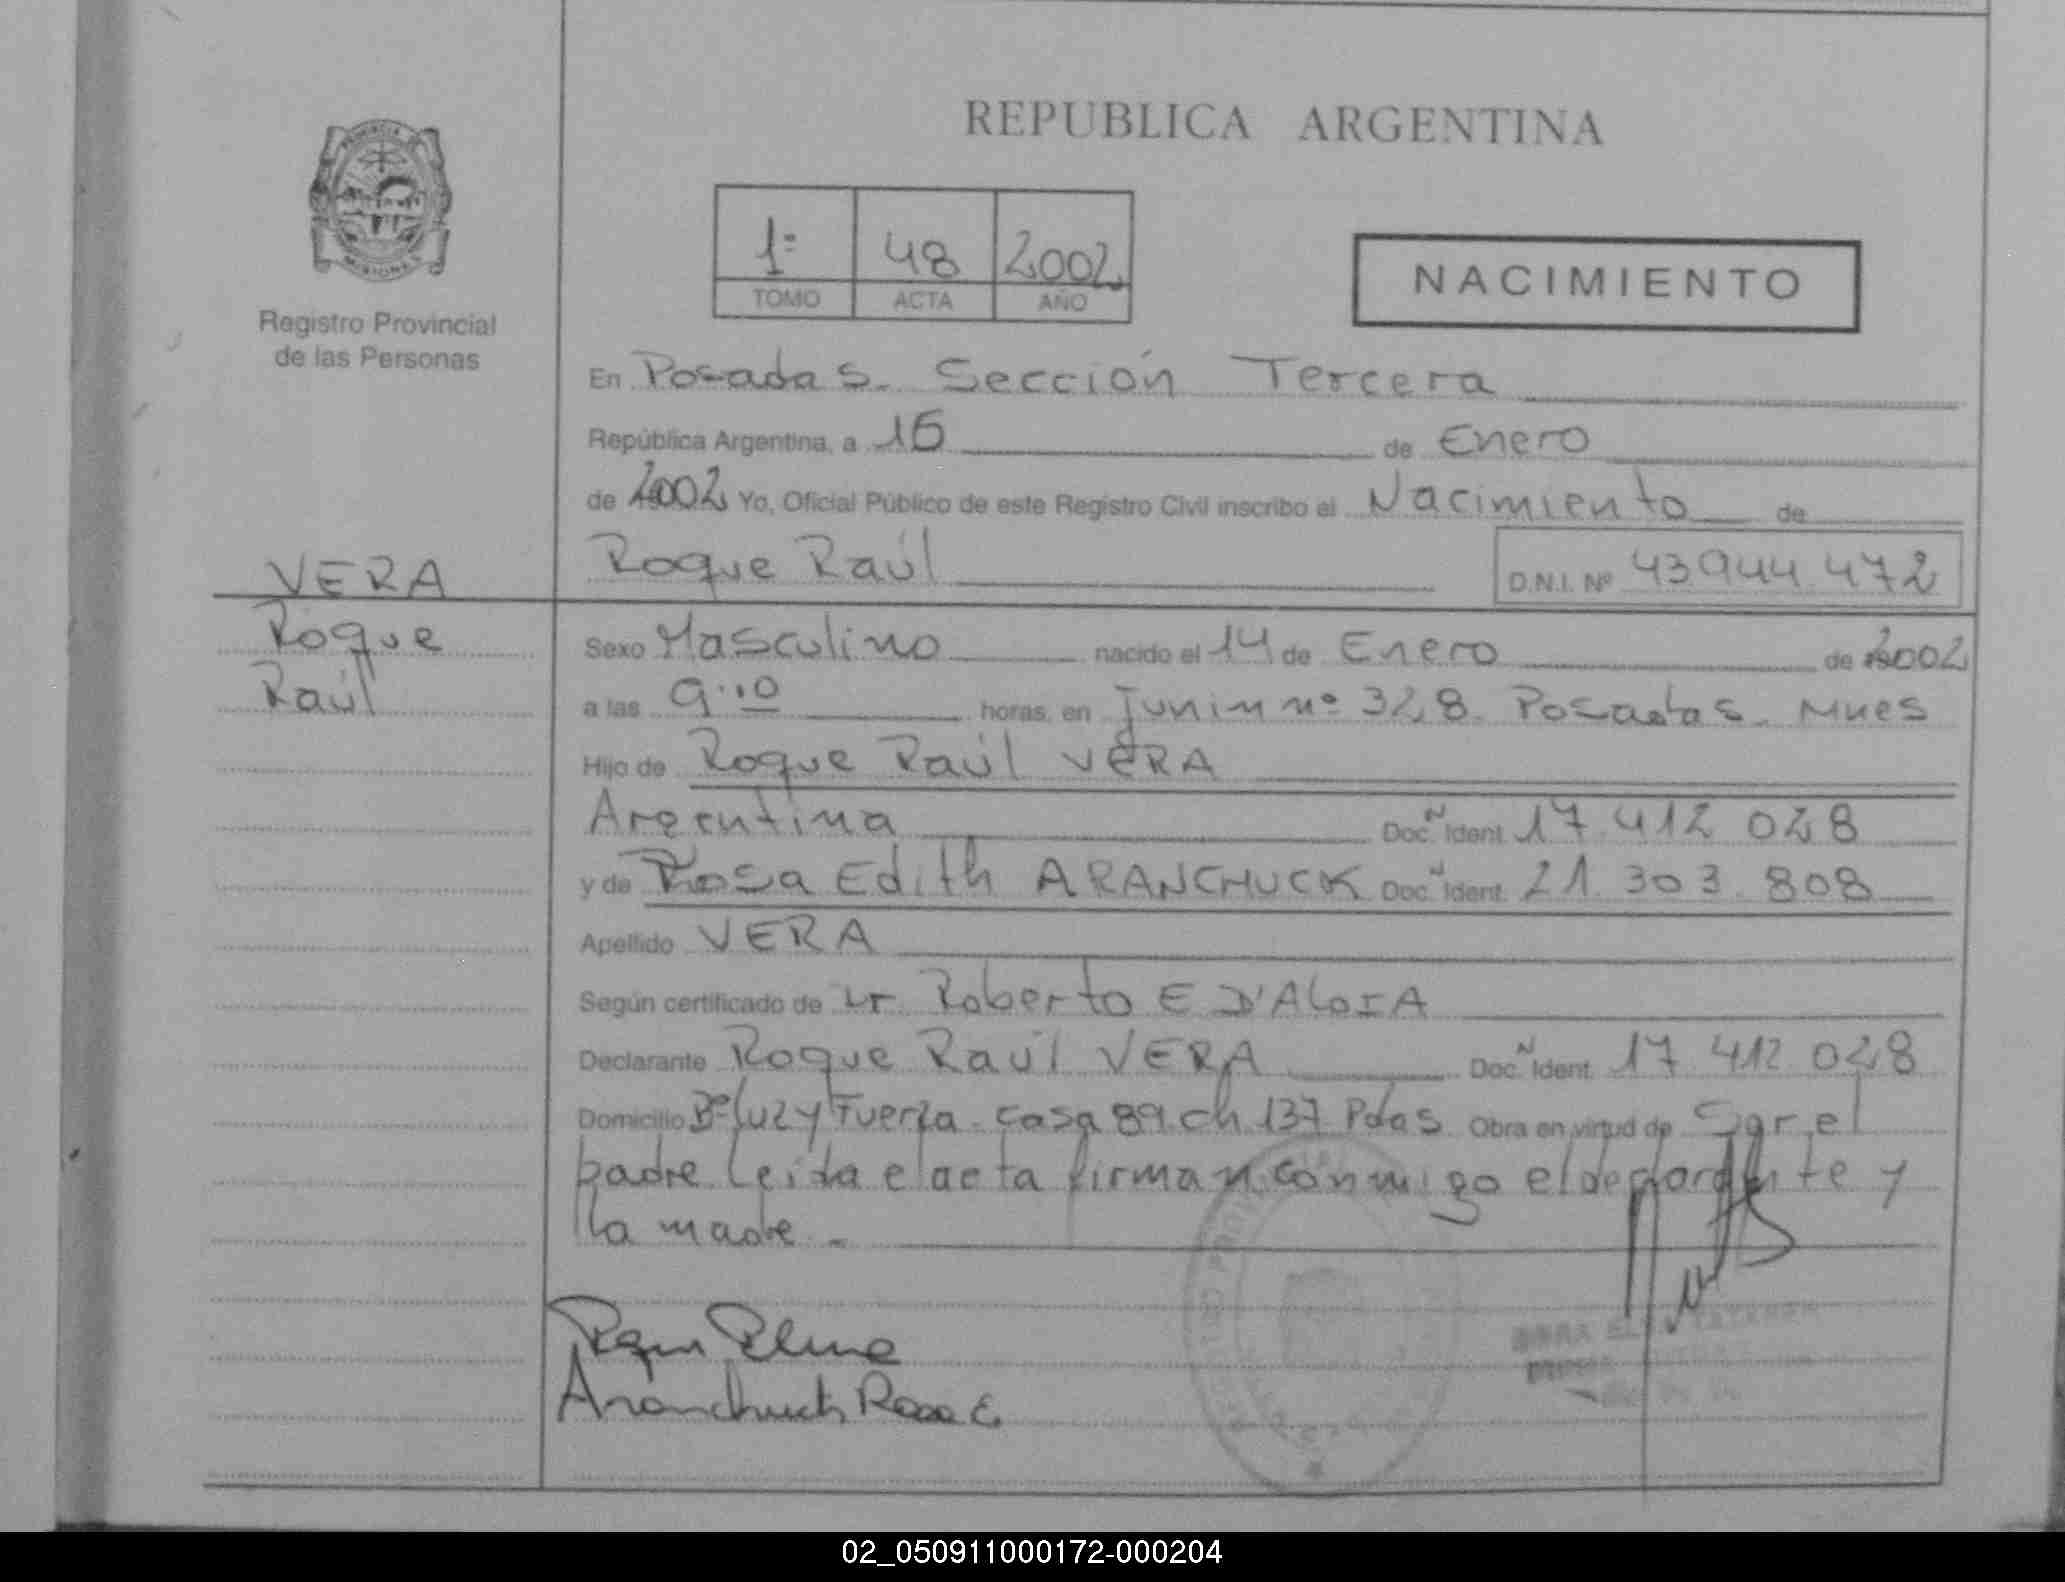 REPUBLICA ARGENTINA
MISIONES
Registro Provincial
de las Personas
1º 48 2002
TOMO ACTA AÑO
NACIMIENTO
En Posadas. Sección Tercera
República Argentina, a 15 de Enero
de 2002 Yo, Oficial Público de este Registro Civil inscribo el Nacimiento de
Roque Raúl D.N.I. Nº 43944.472
VERA
Roque
Raúl
Sexo Masculino nacido el 14 de Enero de 2002
a las 9:10 horas, en Junin nº 328. Posadas. Mnes
Hijo de Roque Raúl VERA
Argentina Doc. N Ident. 17.412 028
y de Rosa Edith ARANCHUCK Doc. N Ident. 21.303.808
Apellido VERA
Según certificado de Roberto E D'AloIA
Declarante Roque Raúl VERA Doc. N Ident. 17 412 028
Domicilio Bº luz y Fuerza. casa 89. ch. 137 Pdas Obra en virtud de Ser el
padre Leida el acta firman conmigo el declarante y
la madre.
Aranchuck Rosa E
02_050911000172-000204